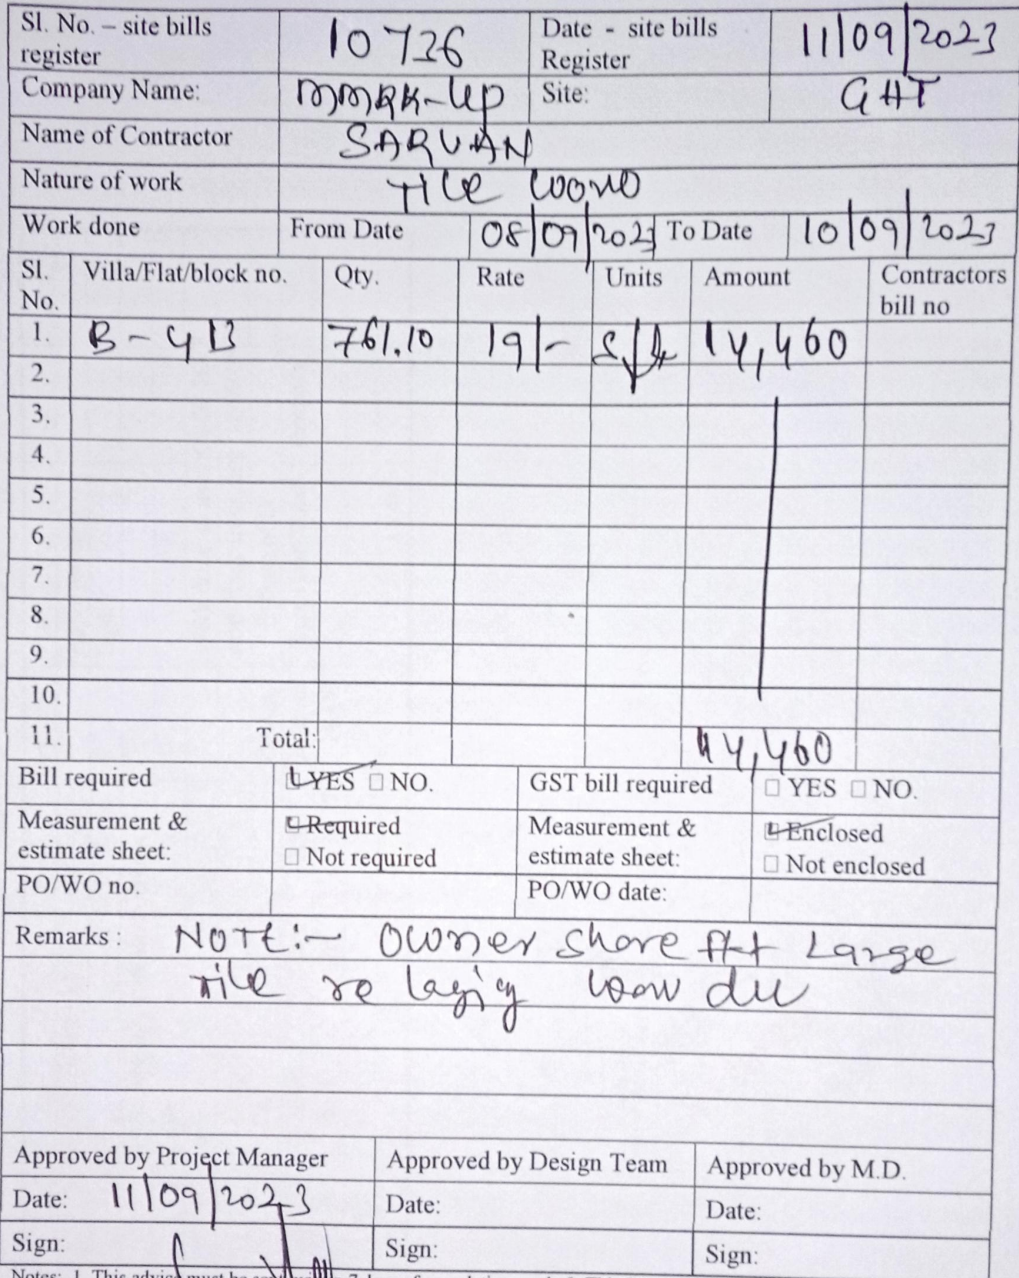 Sl. No. – site bills register 10736 Date - site bills Register 11/09/2023
Company Name: MMRK-Up Site: GHT
Name of Contractor SARVAN
Nature of work Tile work
Work done From Date 08/09/2023 To Date 10/09/2023
Sl. No. Villa/Flat/block no. Qty. Rate Units Amount Contractors bill no
1. B-413 761.10 19/- Sft 14,460
2.
3.
4.
5.
6.
7.
8.
9.
10.
11. Total: 14,460
Bill required YES NO. GST bill required YES NO.
Measurement & estimate sheet: Required Not required Measurement & estimate sheet: Enclosed Not enclosed
PO/WO no. PO/WO date:
Remarks : NOTE:- Owner share flat Large
Tile re laying work
Approved by Project Manager Approved by Design Team Approved by M.D.
Date: 11/09/2023 Date: Date:
Sign: Sign: Sign: